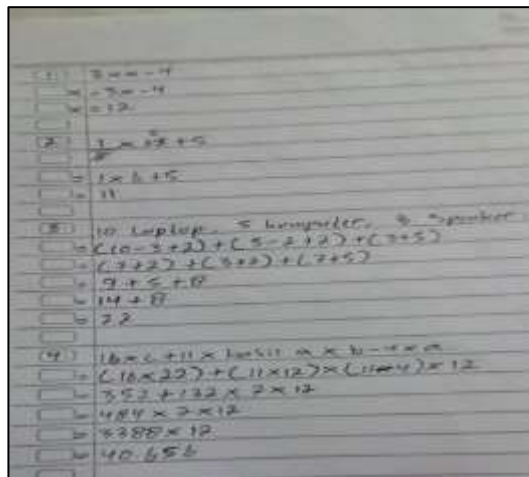 1 3 x a - 4
= -3 x -4
= 12
2 1/2 x 12 + 5
= 1 x 6 + 5
= 11
3 10 Laptop, 5 komputer, 3 Speaker
= (10 - 3 + 2) + (5 - 2 + 2) + (3 + 5)
= (7 + 2) + (3 + 2) + (3 + 5)
= 9 + 5 + 8
= 14 + 8
= 22
4 16 x c + 11 x hasil a x b - 4 x a
= (16 x 22) + (11 x 12) x (11 - 4) x 12
= 352 + 132 x 7 x 12
= 484 x 7 x 12
= 3388 x 12
= 40.656